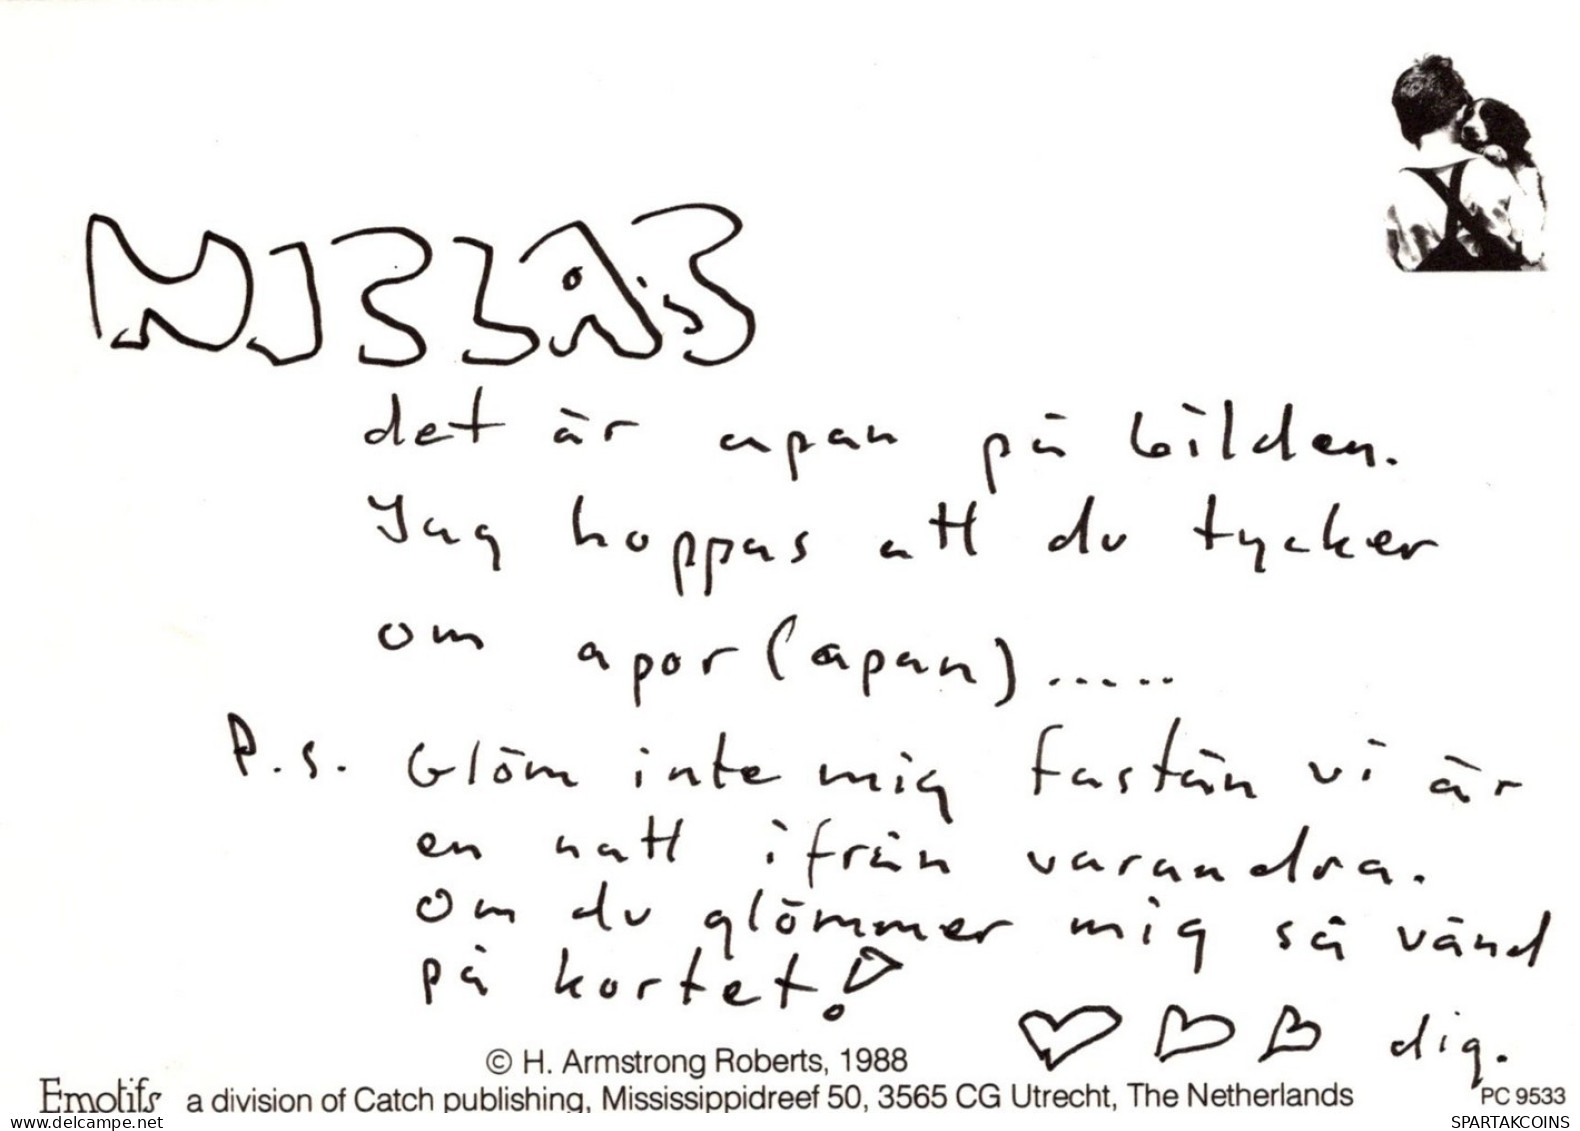 NICLAS
det är apan på bilden.
Jag hoppas att du tycker
om apor (apan).....
P.s. Glöm inte mig fastän vi är
en natt ifrån varandra.
Om du glömmer mig så vänd
på kortet!
♥ ♥ ♥ dig.
© H. Armstrong Roberts, 1988
Emotifs a division of Catch publishing, Mississippidreef 50, 3565 CG Utrecht, The Netherlands PC 9533
www.delcampe.net SPARTAKCOINS